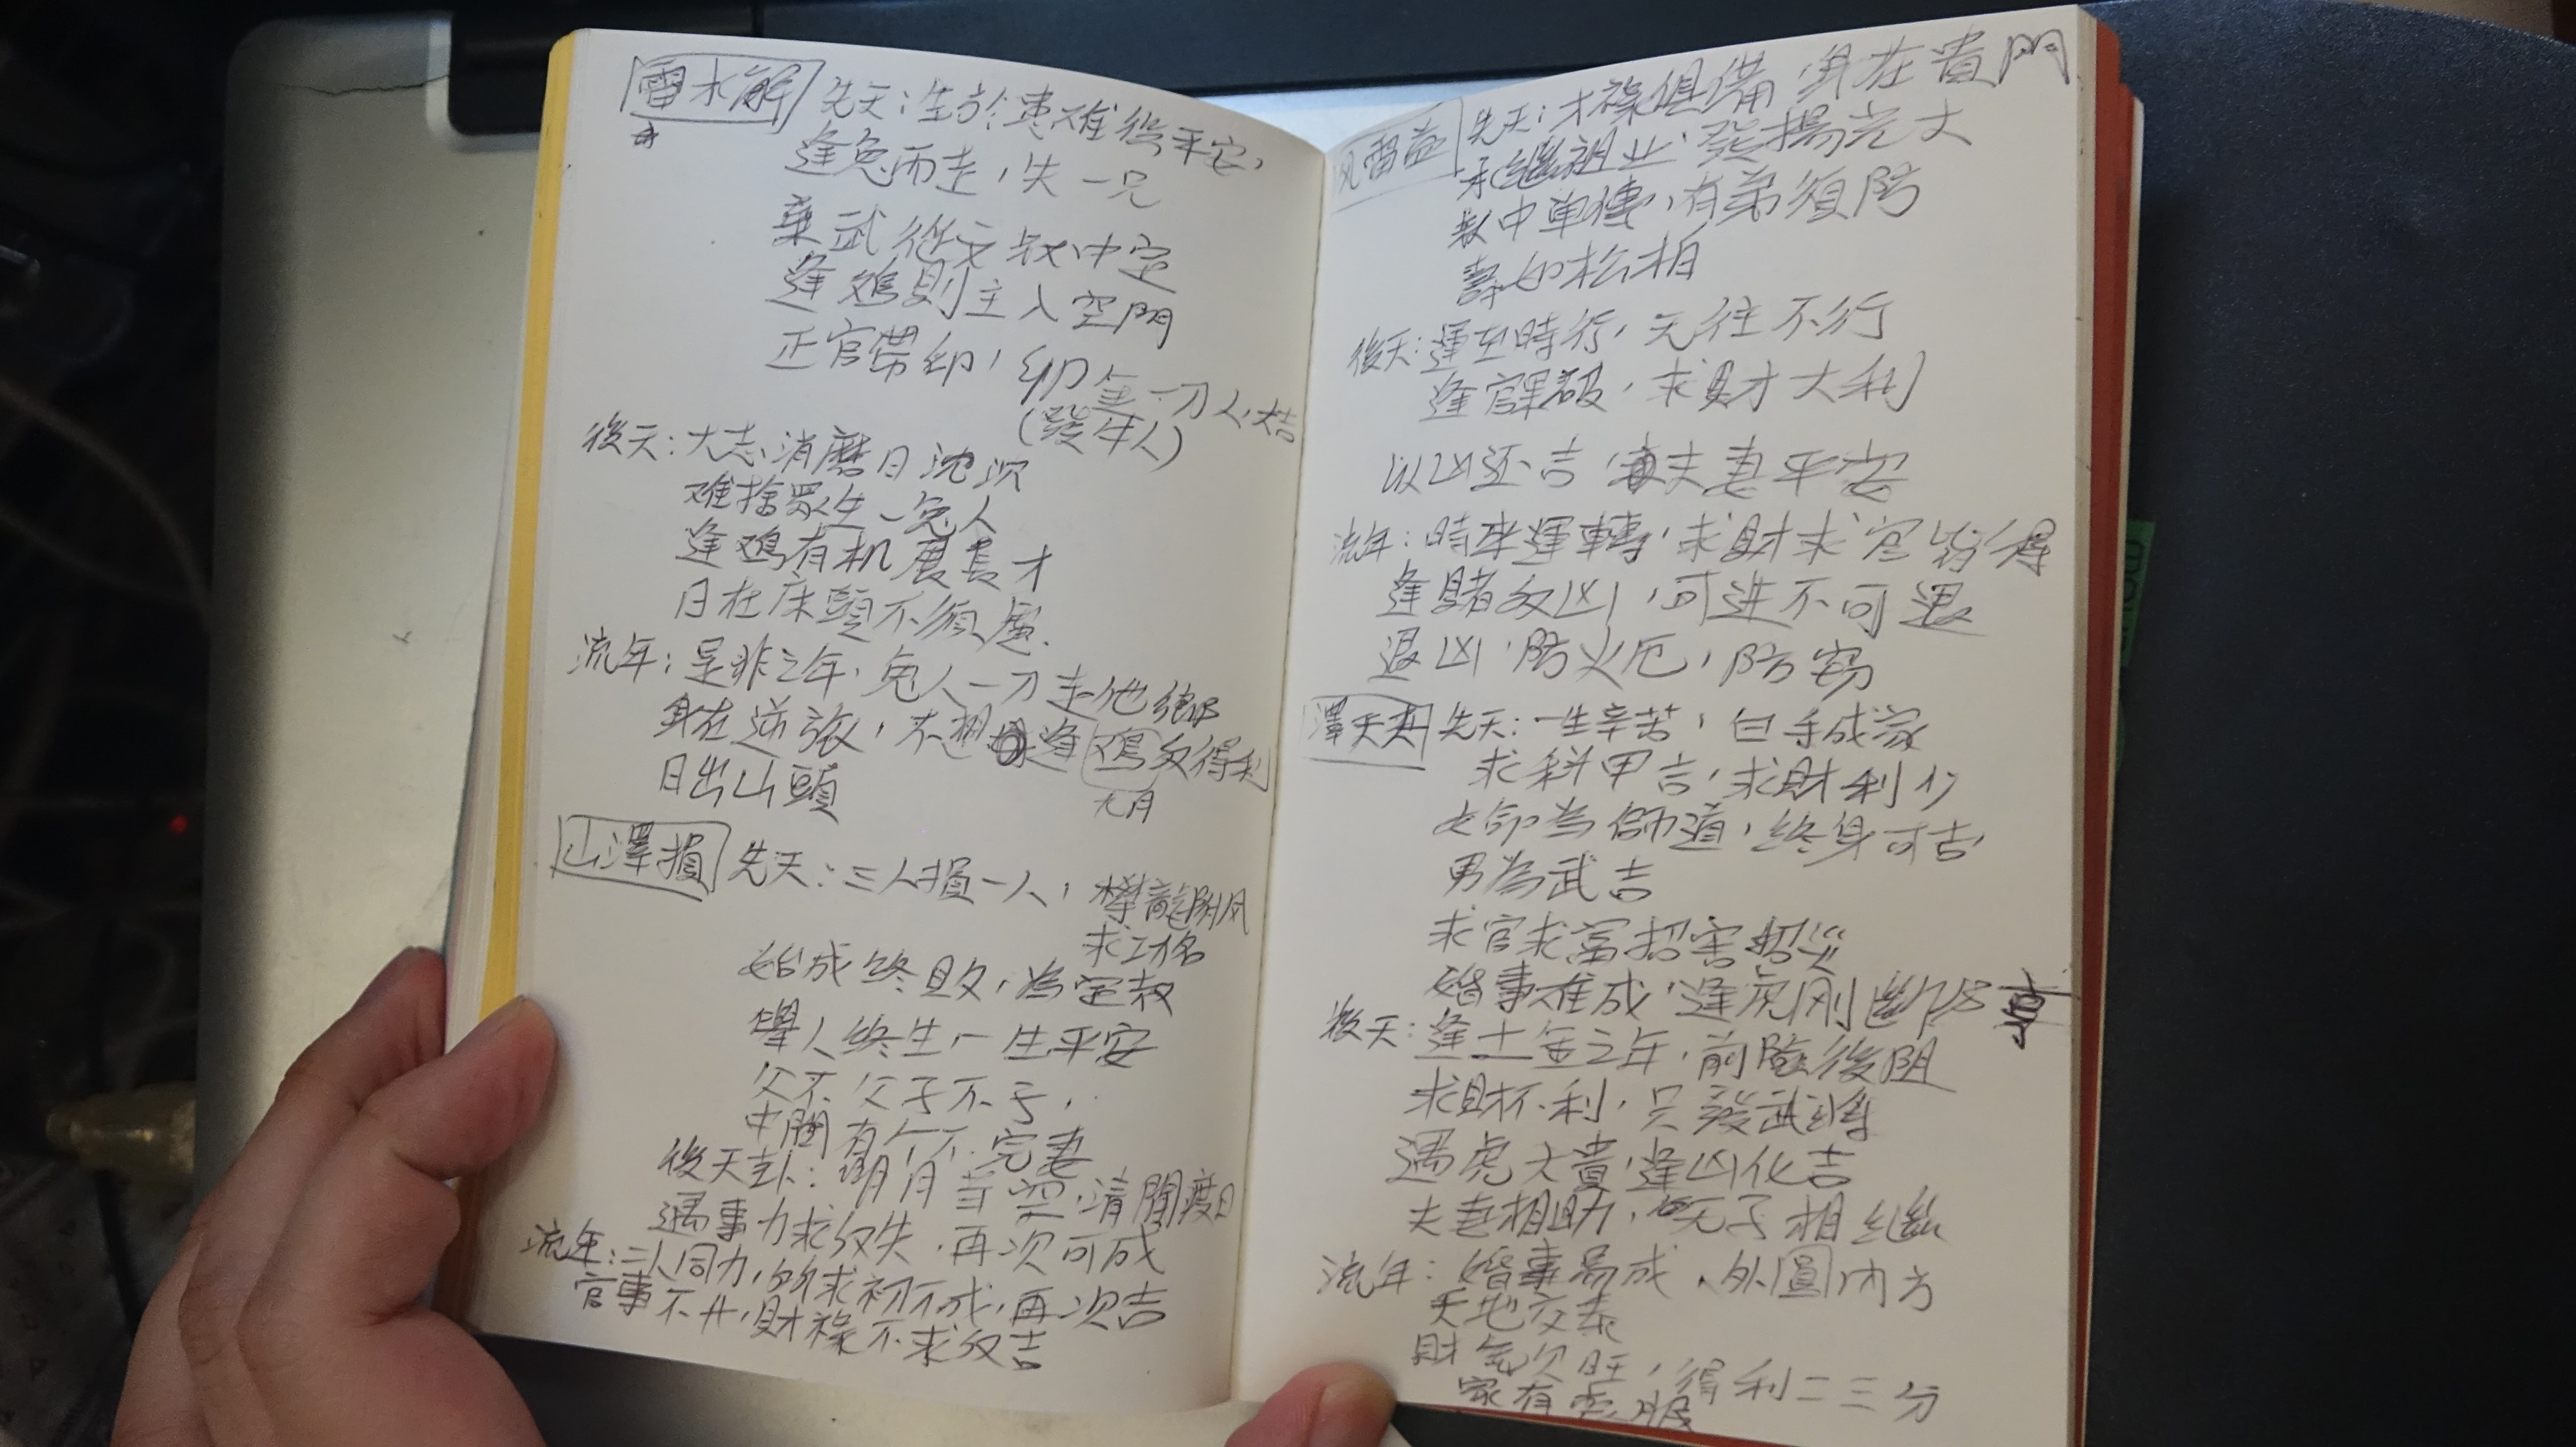 雷水解
先天：生於患难終平安，
逢兔而走，失一兄
棄武從文数中定
逢鸡則主入空門
正官帶印，卯年一刀人大吉
(發年人)
後天：大志消磨日沈沉
难捨眾生一兔人
逢鸡有机展長才
日在床頭不須慮.
流年：是非之年，兔人一刀走他鄉
身在逆張，未想逢鸡反得利
九月
日出山頭
山澤損
先天：三人損一人，攀龍附凤
求功名
始成終敗，為宗教
舉人終生，一生平安
父不父子不子，
中間有个不完妻
後天卦：明月当空，清閒渡日
遇事力求反失，再次可成
流年：二人同力，所求初不成，再次吉
官事不升，財祿不求反吉
风雷益
先天：才祿俱備，身在貴門
承繼祖业，發揚光大
数中單傳，有弟須防
壽如松柏
後天：運至時行，无往不行
逢官畢破，求財大利
以凶还吉，夫妻平安
流年：時來運轉，求財求官皆得
逢賭反凶，可进不可退
退凶，防火厄，防窃
澤天夬
先天：一生辛苦，白手成家
求科甲吉，求財利少
女命為師道，終身可吉
男為武吉
求官求富招害招災
婚事难成，逢虎刚断
後天：逢土金之年，前險後阻
求財不利，只發武將
遇虎大貴，逢凶化吉
夫妻相助，无子相繼
流年：婚事易成，外圓内方
天地交泰
財氣次旺，得利二三分
家有丧服